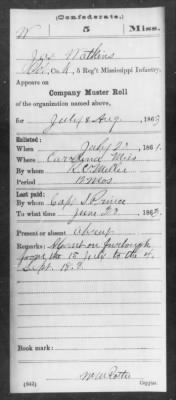 (Confederate.)
W 5 Miss.
Jas Watkins
Co. A, 5 Reg't Mississippi Infantry.
Appears on
Company Muster Roll
of the organization named above,
for July & Aug, 1863
Enlisted:
When July 22, 1861.
Where Miss
By whom
Period
Last paid:
By whom Capt Prince
To what time June 1863.
Present or absent Absent
Remarks: Absent on furlough
from the 15 July to the 4
Sept. 1863
Book mark:
(642) Copyist.